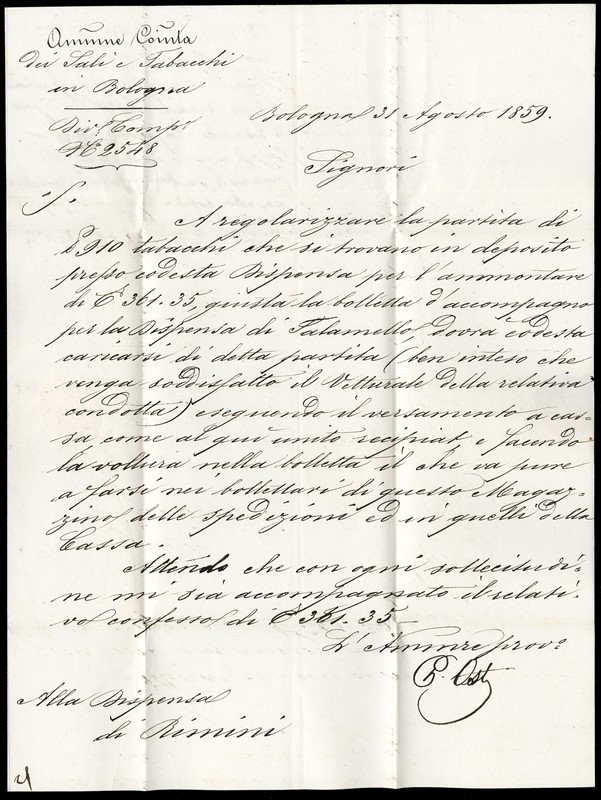 Ammne Cointa
dei Sali e Tabacchi
in Bologna
Div. Comp.
N° 2548
Bologna 31 Agosto 1859.
Signori
A regolarizzare la partita di
£ 910 tabacchi che si trovano in deposito
presso codesta Dispensa per l'ammontare
di 361.35, giusta la bolletta d'accompagno
per la Dispensa di Talamello, dovrà codesta
caricarsi di detta partita (ben inteso che
venga soddisfatto il Vetturale della relativa
condotta) eseguendo il versamento a cas=
sa come al qui unito recipiat, e facendo
la voltura nella bolletta il che va pure
a farsi nei bollettari di questo Magaz=
zino delle spedizioni ed in quelli della
Cassa.
Attendo che con ogni sollecitudi=
ne mi sia accompagnato il relati=
vo confesso di 361.35
L'Ammre provo
Alla Dispensa
di Rimini